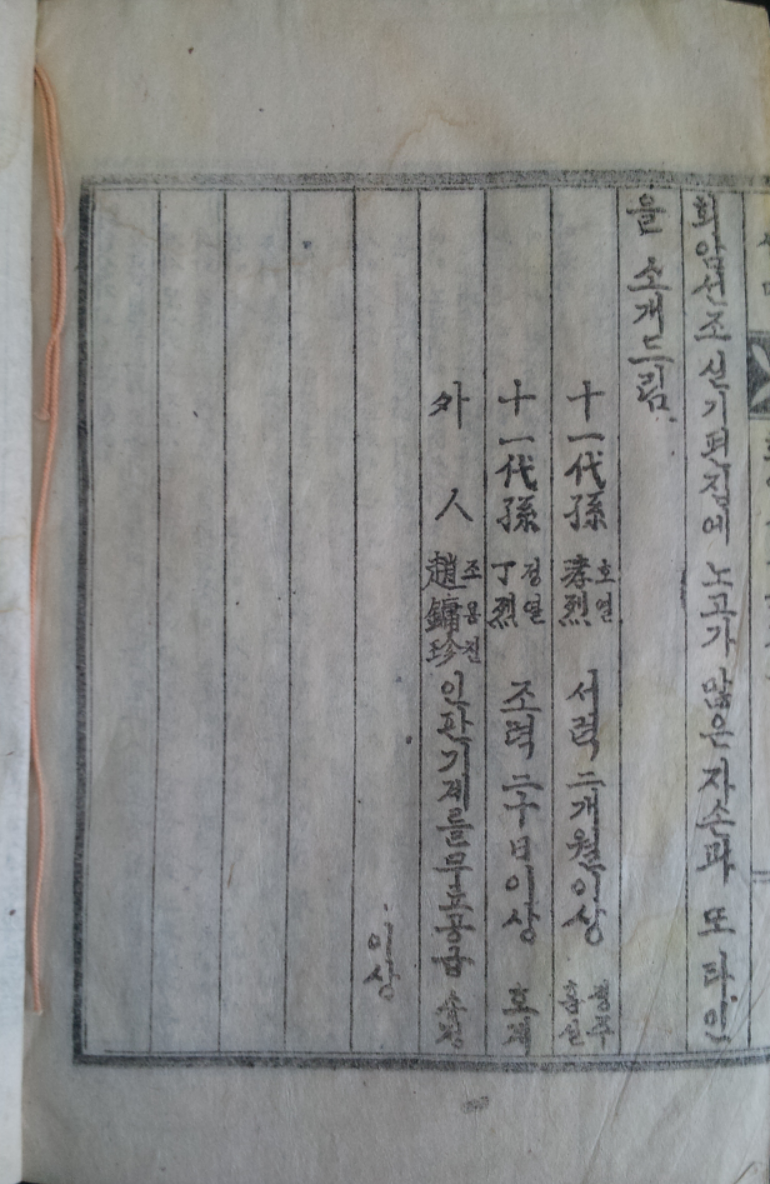 회암선조 실기편집에 노고가 많은 자손과 또 타인
을 소개드림.
十一代孫 孝烈 호열 서력 二개월이상
十一代孫 丁烈 정열 조력 二十日이상
外人 趙鏞珍 조용진 인판기계를무료공급
이상